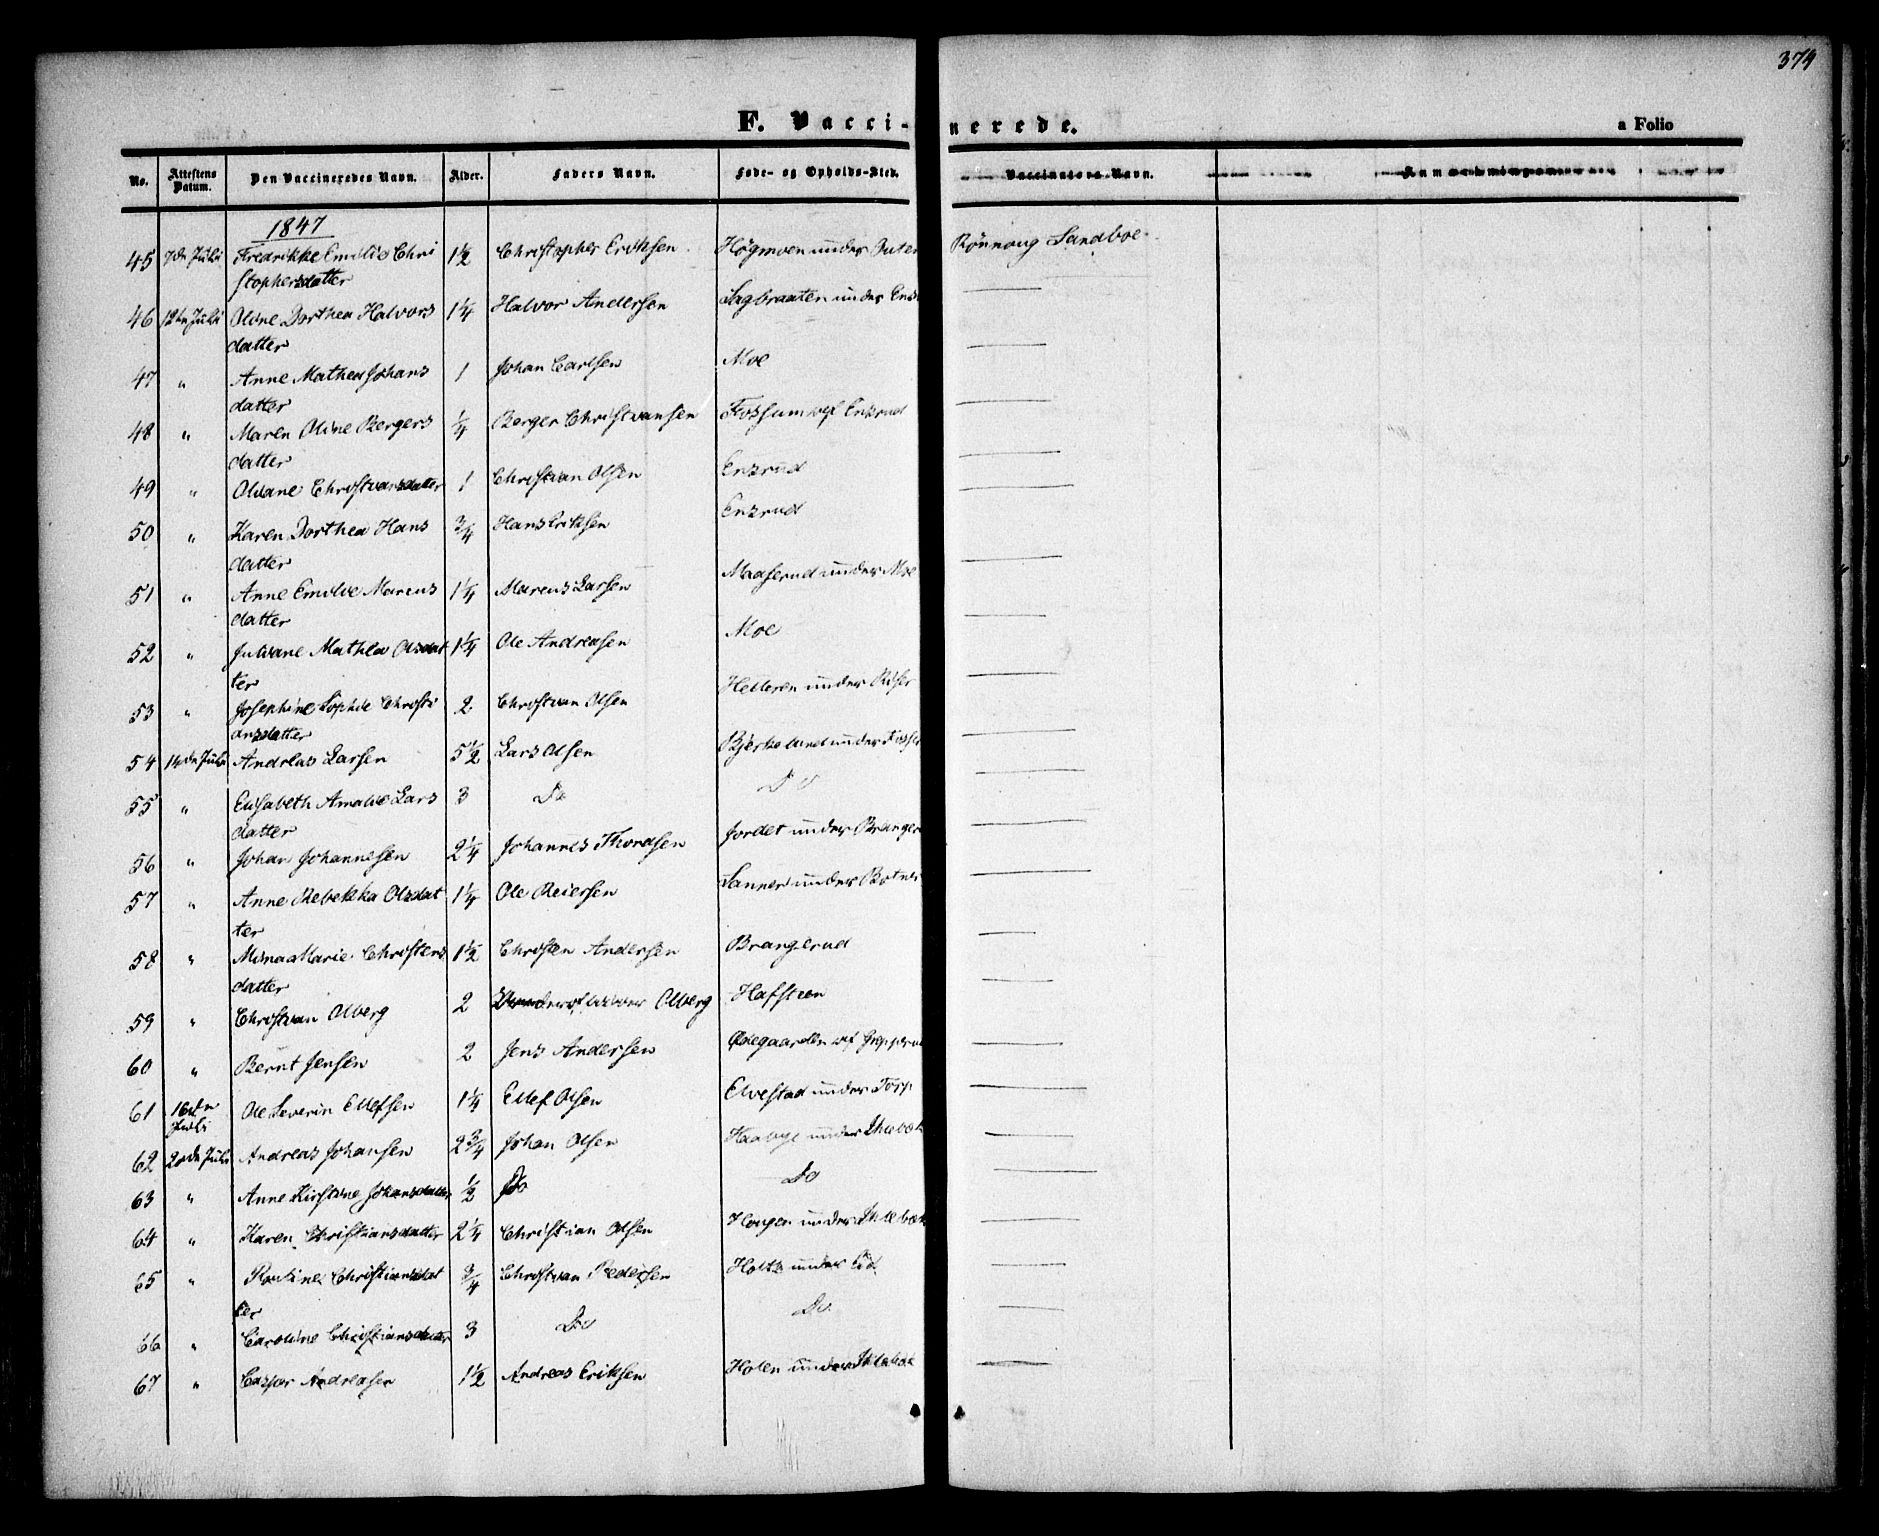 374
F. Vaccinerede.
a Folio
No. Attestens Datum. Den Vaccineredes Navn. Alder. Faders Navn. Føde- og Opholds-Sted. Vaccinatorens Navn. Anmærkninger
1847
45 7de Juli Fredrikke Emilie Chri 1½ Christopher Eriksen Högmoen under Rönnoug Sandboe
stophersdatter
46 12te Juli Oline Dorthea Halvors 1¼ Halvor Andersen Sagbraaten under
datter
47 " Anne Mathea Johans 1 Johan Carlsen Moe
datter
48 " Maren Oline Bergers ¼ Berger Christiansen Fossum Enzrud
datter
49 " Oliane Christiansdatter 1 Christian Olsen Enzrud
50 " Karen Dorthea Hans ¾ Hans Eriksen Enzrud
datter
51 " Anne Emilie Marcus 1¼ Marcus Larsen Maaserud under Moe
datter
52 " Juliane Mathea Olsdat 1¼ Ole Andreasen Moe
ter
53 " Josephine Sophie Christi 2 Christian Olsen Helleren under Riser
ansdatter
54 14de Juli Andreas Larsen 5½ Lars Olsen Bjerkelund under
55 " Elisabeth Amalie Lars 3 Do Do
datter
56 " Johan Johannesen 2¼ Johannes Thordsen Jordet under Branger
57 " Anne Rebekka Olsdat 1¼ Ole Reiersen Sanner under Botner
ter
58 " Mina Marie Christens 1½ Christen Andersen Brangerud
datter
59 " Christian Olberg 2 Olberg Hafstien
60 " Bernt Jensen 2 Jens Andersen Ødegaarden
61 16de Juli Ole Severin Ellefsen 1¼ Ellef Olsen Elvestad under Torp
62 20de Juli Andreas Johansen 2¾ Johan Olsen Haabye under
63 " Anne Kirstine Johansdatter ½ Do Do
64 " Karen Christiansdatter 2¼ Christian Olsen Hougen under
65 " Pauline Christiansdat ¾ Christian Pedersen Holtz under
ter
66 " Caroline Christiansdatter 3 Do Do
67 " Casper Andreasen 1½ Andreas Eriksen Holen under